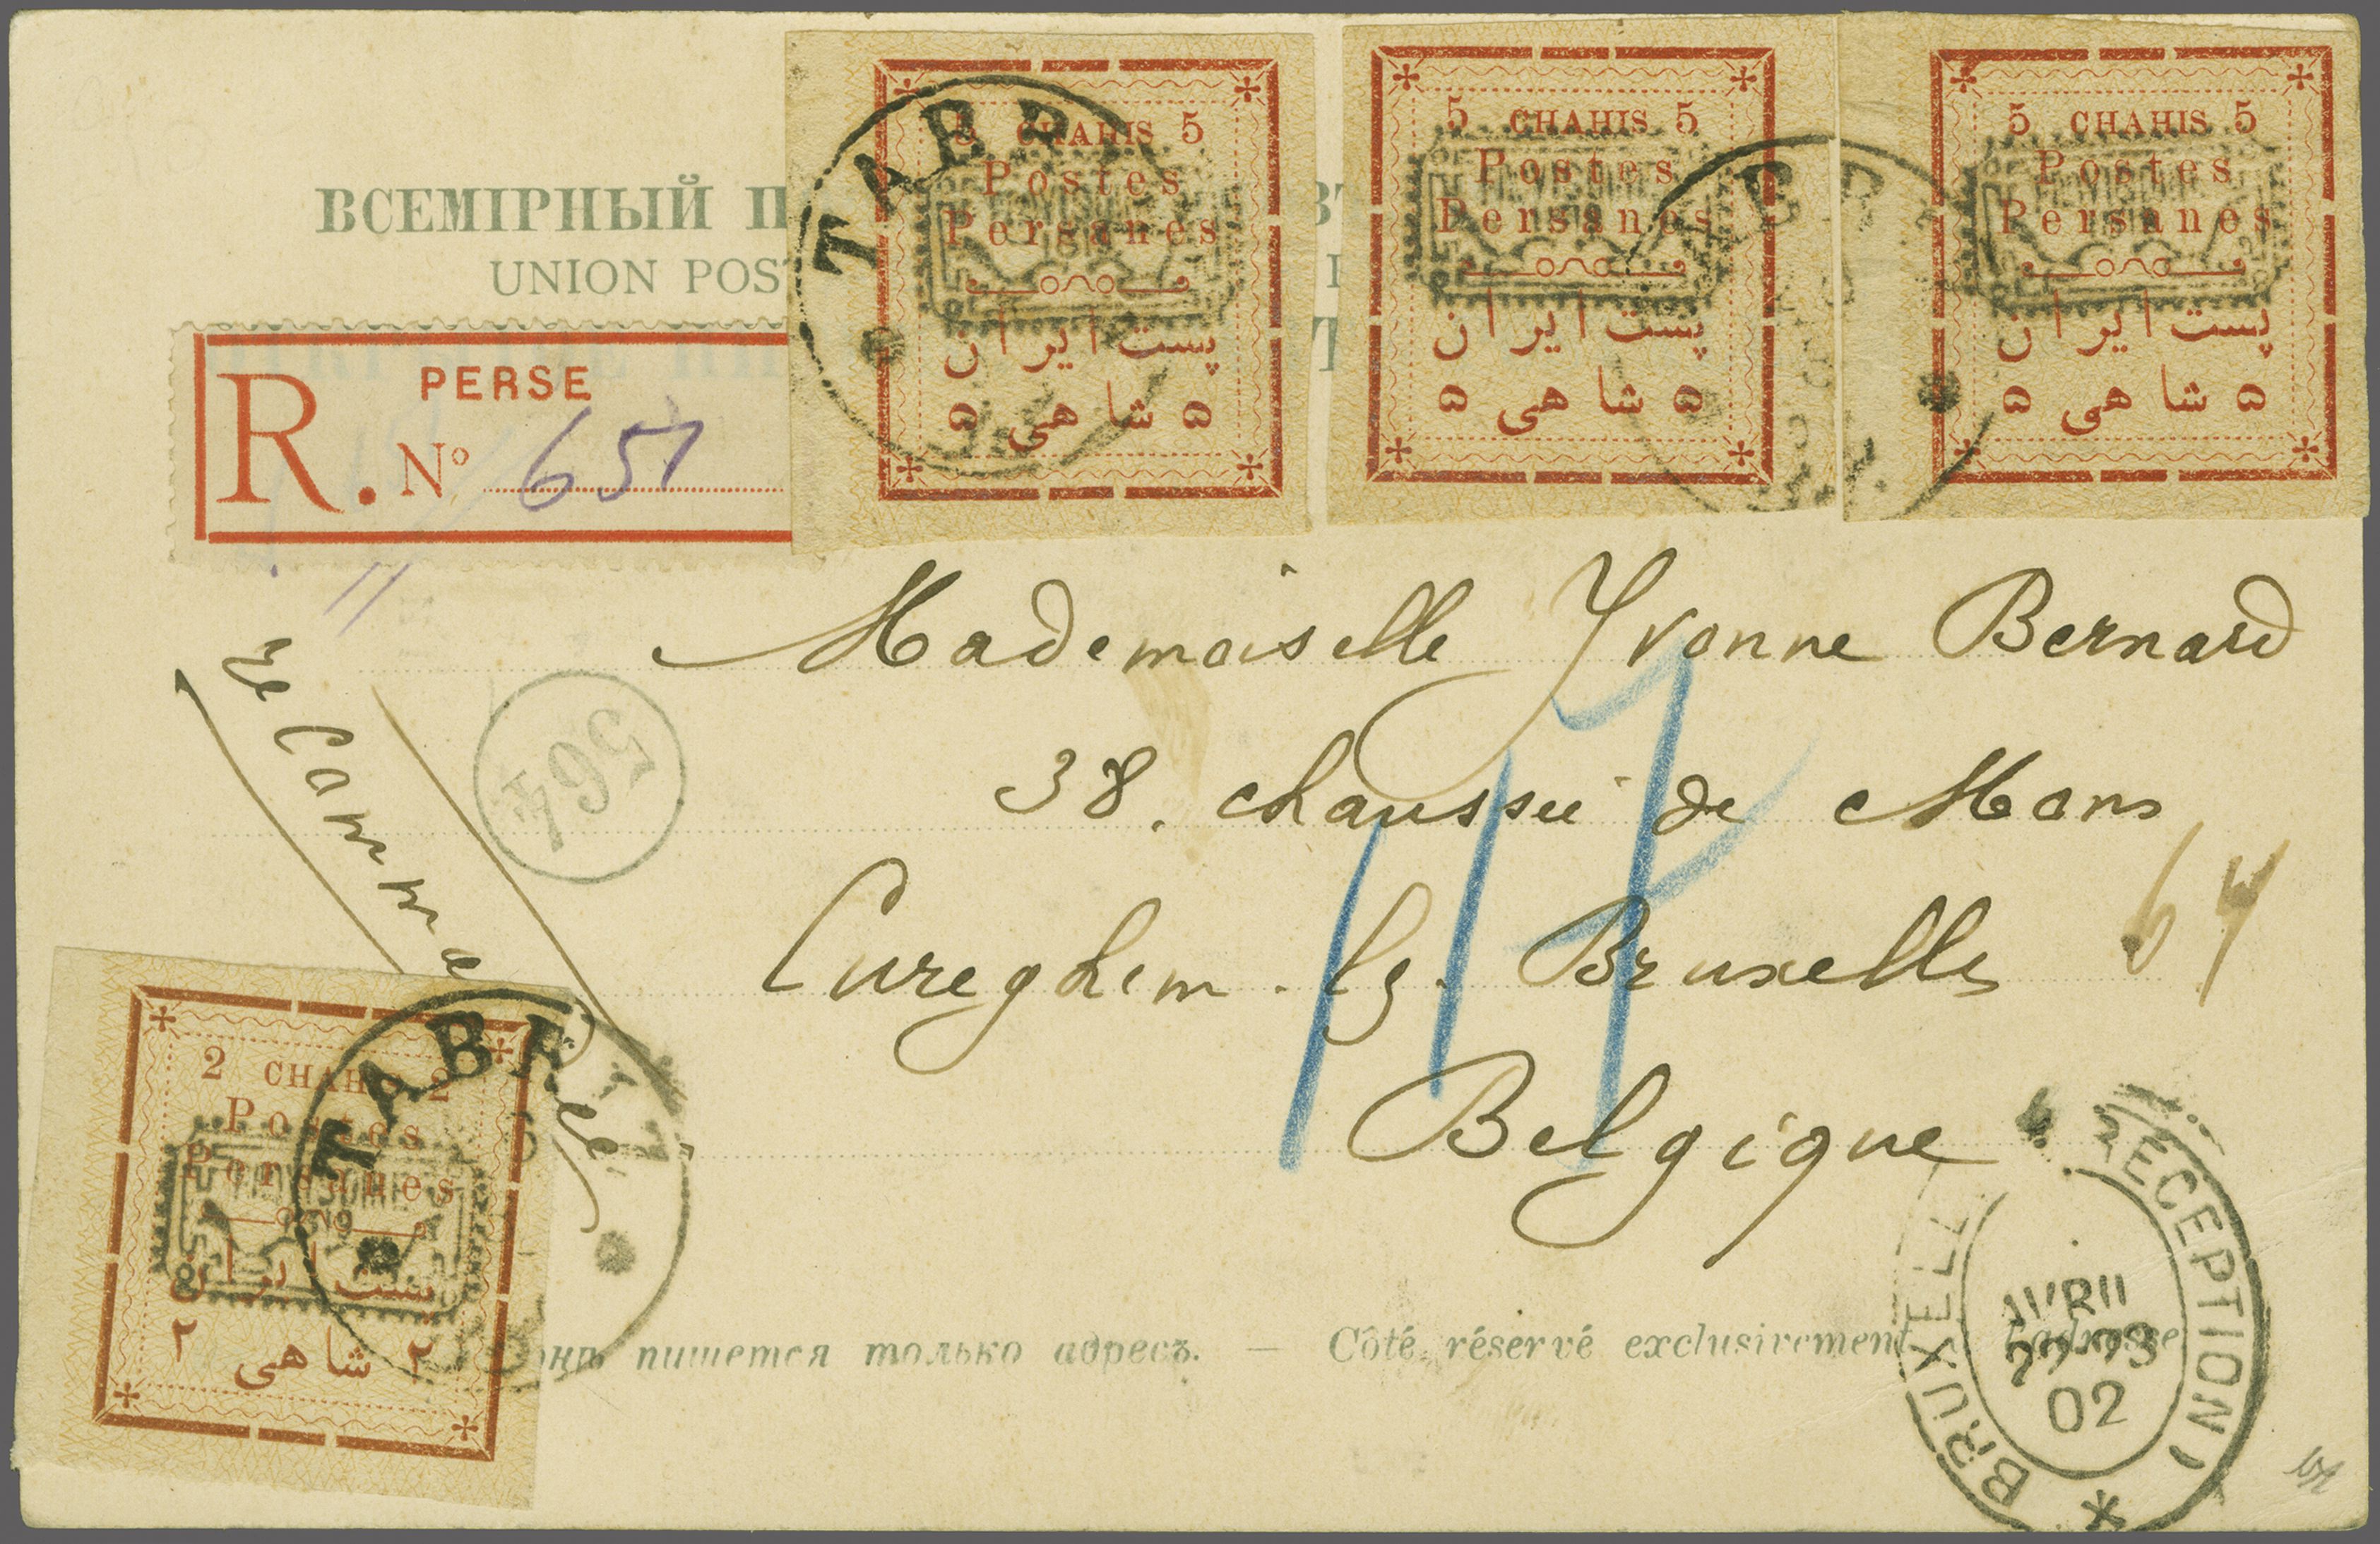 ВСЕМІРНЫЙ
UNION
PERSE
R. Nº 657
TABR
5 CHAHIS 5
Postes
Persanes
پست ایران
۵ شاهی ۵
5 CHAHIS 5
Postes
Persanes
پست ایران
۵ شاهی ۵
5 CHAHIS 5
Postes
Persanes
پست ایران
۵ شاهی ۵
Mademoiselle Yvonne Bernard
38. chaussée de Mons
Cureghem. lz. Bruxelles
Belgique
564
117
64
2 CHAHIS 2
Postes
Persanes
پست ایران
۲ شاهی ۲
TABRIZ
пишется только адресъ. — Côté réservé exclusivement à l'adresse
BRUXELL
RECEPTION
AVRIL
02